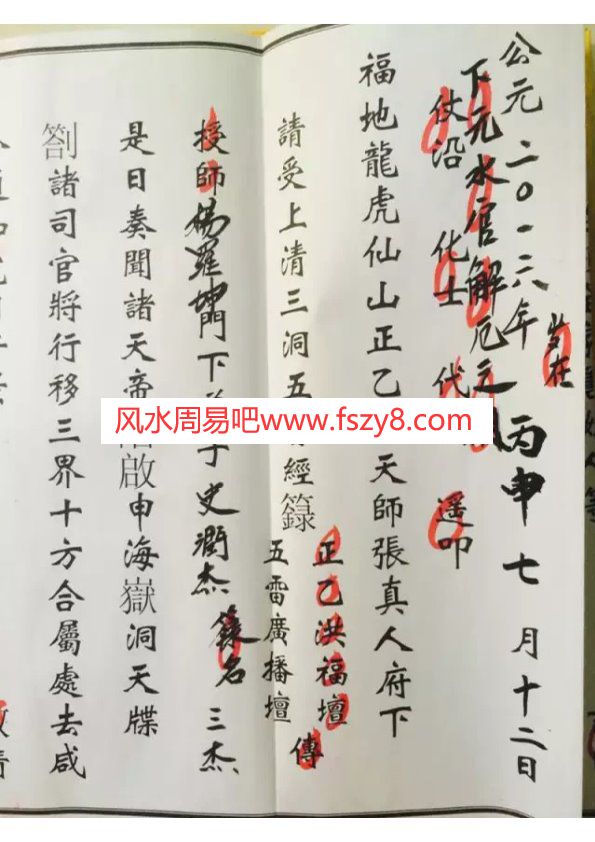 公元二〇一六年 岁在 丙申七月十二日
下元水官解厄之
仗沿 化士 代 遥叩
福地龍虎仙山正乙 天師張真人府下
請受上清三洞五 經籙 正乙洪福壇
五雷廣播壇 傳
授師 羅坤門下 子史潤杰 籙名 三杰
是日奏聞諸天帝 啟申海嶽洞天牒
劄諸司官將行移三界十方合屬處去咸
风水周易吧www.fszy8.com